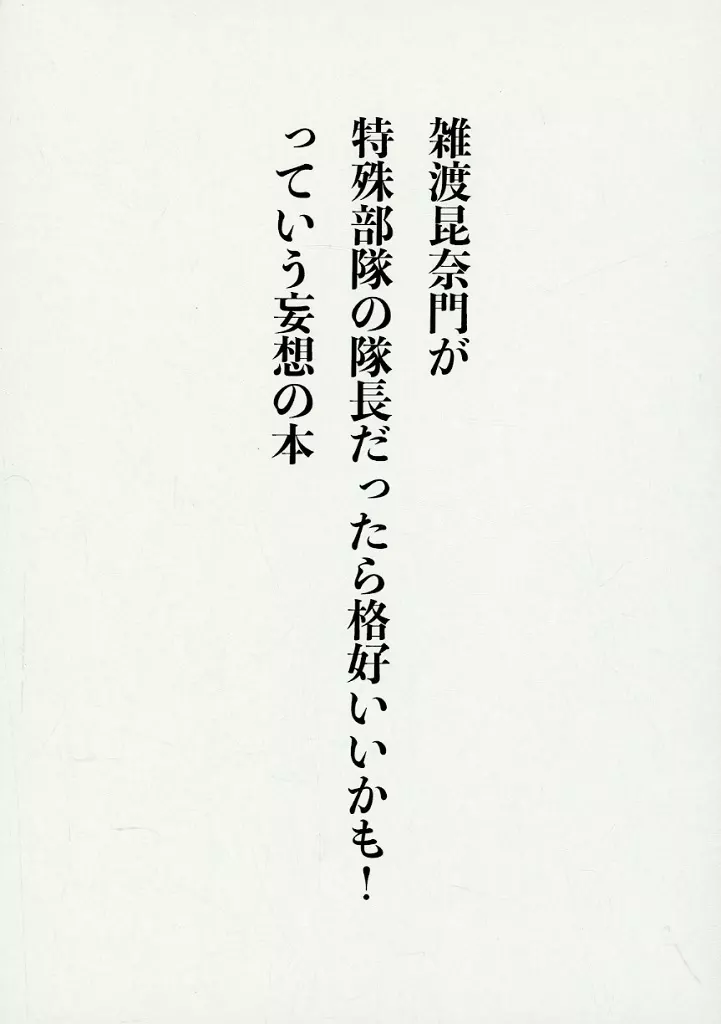 雑渡昆奈門が
特殊部隊の隊長だったら格好いいかも！
っていう妄想の本